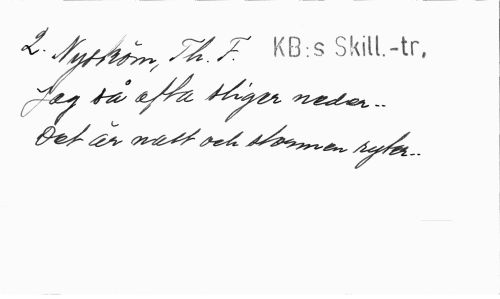 2. Nyström, Th. F. KB:s Skill.-tr.
Jag så ofta stiger neder..
Det är natt och stormen ryter..